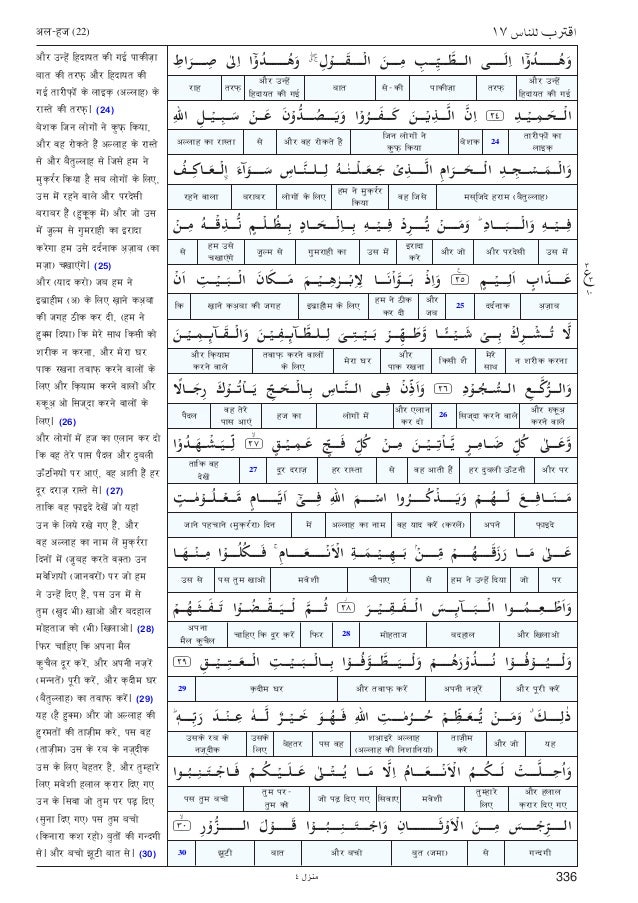 अल-हज (22)
اقترب للناس ١٧
और उन्हें हिदायत की गई पाकीज़ा
बात की तरफ़ और हिदायत की
गई तारीफ़ों के लाइक़ (अल्लाह) के
रास्ते की तरफ़| (24)
बेशक जिन लोगों ने कुफ़्र किया,
और वह रोकते हैं अल्लाह के रास्ते
से और बैतुल्लाह से जिसे हम ने
मुक़र्रर किया है सब लोगों के लिए,
उस में रहने वाले और परदेसी
बराबर हैं (हुक़ूक़ में) और जो उस
में ज़ुल्म से गुमराही का इरादा
करेगा हम उसे दर्दनाक अ़ज़ाब (का
मज़ा) चखाएंगे| (25)
और (याद करो) जब हम ने
इब्राहीम (अ) के लिए ख़ाने कअ़बा
की जगह ठीक कर दी, (हम ने
हुक्म दिया) कि मेरे साथ किसी को
शरीक न करना, और मेरा घर
पाक रखना तवाफ़ करने वालों के
लिए और क़ियाम करने वालों और
रुकूअ़ ओ सिजदा करने वालों के
लिए| (26)
और लोगों में हज का एलान कर दो
कि वह तेरे पास पैदल और दुबली
ऊँटनियों पर आएं, वह आती हैं हर
दूर दराज़ रास्ते से| (27)
ताकि वह फ़ाइदे देखें जो यहां
उन के लिये रखे गए हैं, और
वह अल्लाह का नाम लें मुक़र्ररा
दिनों में (ज़ुबह करते वक़्त) उन
मवेशियों (जानवरों) पर जो हम
ने उन्हें दिए हैं, पस उन में से
तुम (ख़ुद भी) खाओ और बदहाल
मोहताज को (भी) खिलाओ| (28)
फिर चाहिए कि अपना मैल
कुचैल दूर करें, और अपनी नज़रें
(मन्नतें) पूरी करें, और क़दीम घर
(बैतुल्लाह) का तवाफ़ करें| (29)
यह (है हुक्म) और जो अल्लाह की
हुरमतों की ताज़ीम करे, पस वह
(ताज़ीम) उस के रब के नज़्दीक
उस के लिए बेहतर है, और तुम्हारे
लिए मवेशी हलाल क़रार दिए गए
उन के सिवा जो तुम पर पढ़ दिए
(सुना दिए गए) पस तुम बचो
(किनारा कश रहो) बुतों की गन्दगी
से| और बचो झूटी बात से| (30)
وَهُدُوۡۤا اِلَى الطَّيِّبِ مِنَ الۡقَوۡلِ ۖۚ وَهُدُوۡۤا اِلٰى صِرَاطِ
और उन्हें हिदायत की गई तरफ़ पाकीज़ा से-की बात और उन्हें हिदायत की गई तरफ़ राह
الۡحَمِيۡدِ ٢٤ اِنَّ الَّذِيۡنَ كَفَرُوۡا وَيَصُدُّوۡنَ عَنۡ سَبِيۡلِ اللّٰهِ
तारीफ़ों का लाइक़ 24 बेशक जिन लोगों ने कुफ़्र किया और वह रोकते हैं से अल्लाह का रास्ता
وَالۡمَسۡجِدِ الۡحَرَامِ الَّذِىۡ جَعَلۡنٰهُ لِلنَّاسِ سَوَآءَ ۨالۡعَاكِفُ
मस्जिदे हराम (बैतुल्लाह) वह जिसे हम ने मुक़र्रर किया लोगों के लिए बराबर रहने वाला
فِيۡهِ وَالۡبَادِ ؕ وَمَنۡ يُّرِدۡ فِيۡهِ بِاِلۡحَادٍۢ بِظُلۡمٍ نُّذِقۡهُ مِنۡ
उस में और परदेसी और जो इरादा करे उस में गुमराही का ज़ुल्म से हम उसे चखाएंगे से
عَذَابٍ اَلِيۡمٍ ٢٥ وَاِذۡ بَوَّاۡنَا لِاِبۡرٰهِيۡمَ مَكَانَ الۡبَيۡتِ اَنۡ
अ़ज़ाब दर्दनाक 25 और जब हम ने ठीक कर दी इब्राहीम के लिए ख़ाने कअ़बा की जगह कि
لَّا تُشۡرِكۡ بِىۡ شَيۡـًٔا وَّطَهِّرۡ بَيۡتِىَ لِلطَّآئِفِيۡنَ وَالۡقَآئِمِيۡنَ
न शरीक करना मेरे साथ किसी शै और पाक रखना मेरा घर तवाफ़ करने वालों के लिए और क़ियाम करने वाले
وَالرُّكَّعِ السُّجُوۡدِ ٢٦ وَاَذِّنۡ فِى النَّاسِ بِالۡحَجِّ يَاۡتُوۡكَ رِجَالًا
और रुकूअ़ करने वाले सिजदा करने वाले 26 और एलान कर दो लोगों में हज का वह तेरे पास आएं पैदल
وَّعَلٰى كُلِّ ضَامِرٍ يَّاۡتِيۡنَ مِنۡ كُلِّ فَجٍّ عَمِيۡقٍ ٢٧ لِّيَشۡهَدُوۡا
और पर हर दुबली ऊँटनी वह आती हैं से हर रास्ता दूर दराज़ 27 ताकि वह देखें
مَنَافِعَ لَهُمۡ وَيَذۡكُرُوا اسۡمَ اللّٰهِ فِىۡۤ اَيَّامٍ مَّعۡلُوۡمٰتٍ
फ़ाइदे अपने वह याद करें (करलें) अल्लाह का नाम में जाने पहचाने (मुक़र्ररा) दिन
عَلٰى مَا رَزَقَهُمۡ مِّنۡۢ بَهِيۡمَةِ الۡاَنۡعَامِ ۚ فَكُلُوۡا مِنۡهَا
पर जो हम ने उन्हें दिया से चौपाए मवेशी पस तुम खाओ उस से
وَاَطۡعِمُوا الۡبَآئِسَ الۡفَقِيۡرَ ٢٨ ثُمَّ لۡيَقۡضُوۡا تَفَثَهُمۡ
और खिलाओ बदहाल मोहताज 28 फिर चाहिए कि दूर करें अपना मैल कुचैल
وَلۡيُوۡفُوۡا نُذُوۡرَهُمۡ وَلۡيَطَّوَّفُوۡا بِالۡبَيۡتِ الۡعَتِيۡقِ ٢٩
और पूरी करें अपनी नज़रें और तवाफ़ करें क़दीम घर 29
ذٰلِكَ ۗ وَمَنۡ يُّعَظِّمۡ حُرُمٰتِ اللّٰهِ فَهُوَ خَيۡرٌ لَّهٗ عِنۡدَ رَبِّهٖ ؕ
यह और जो ताज़ीम करे शआ़इरे अल्लाह (अल्लाह की निशानियां) पस वह बेहतर उसके लिए उसके रब के नज़्दीक
وَاُحِلَّتۡ لَـكُمُ الۡاَنۡعَامُ اِلَّا مَا يُتۡلٰى عَلَيۡكُمۡ فَاجۡتَنِبُوا
और हलाल क़रार दिए गए तुम्हारे लिए मवेशी सिवाए जो पढ़ दिए गए तुम पर-तुम को पस तुम बचो
الرِّجۡسَ مِنَ الۡاَوۡثَانِ وَاجۡتَنِبُوۡا قَوۡلَ الزُّوۡرِ ٣٠
गन्दगी से बुत (जमा) और बचो बात झूटी 30
٢
ع
٣
١٠
منزل ٤
336